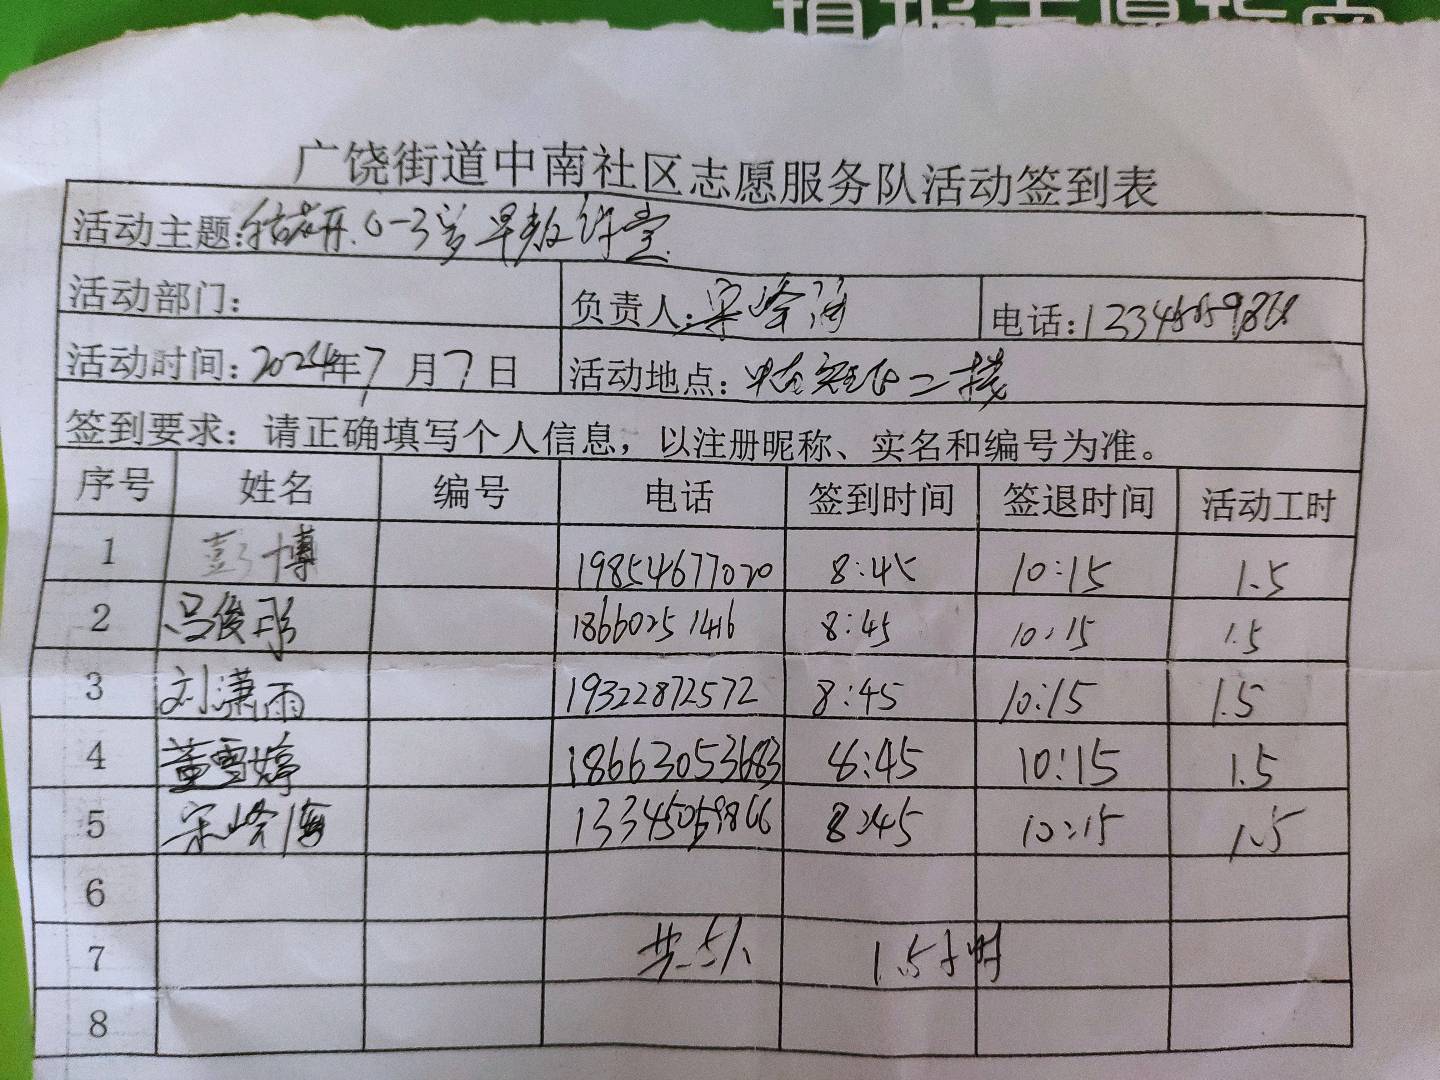 填报志愿指南
广饶街道中南社区志愿服务队活动签到表
活动主题: 0-3岁早教课堂
活动部门:
负责人: 宋峰海
电话: 13345059866
活动时间: 2024年7月7日
活动地点: 二楼
签到要求: 请正确填写个人信息，以注册昵称、实名和编号为准。
序号 姓名 编号 电话 签到时间 签退时间 活动工时
1 彭博 19854677020 8:45 10:15 1.5
2 冯俊彤 18660251416 8:45 10:15 1.5
3 刘潇雨 19322872572 8:45 10:15 1.5
4 董雪婷 18663053683 8:45 10:15 1.5
5 宋峰海 13345059866 8:45 10:15 1.5
6
7 共5人 1.5小时
8